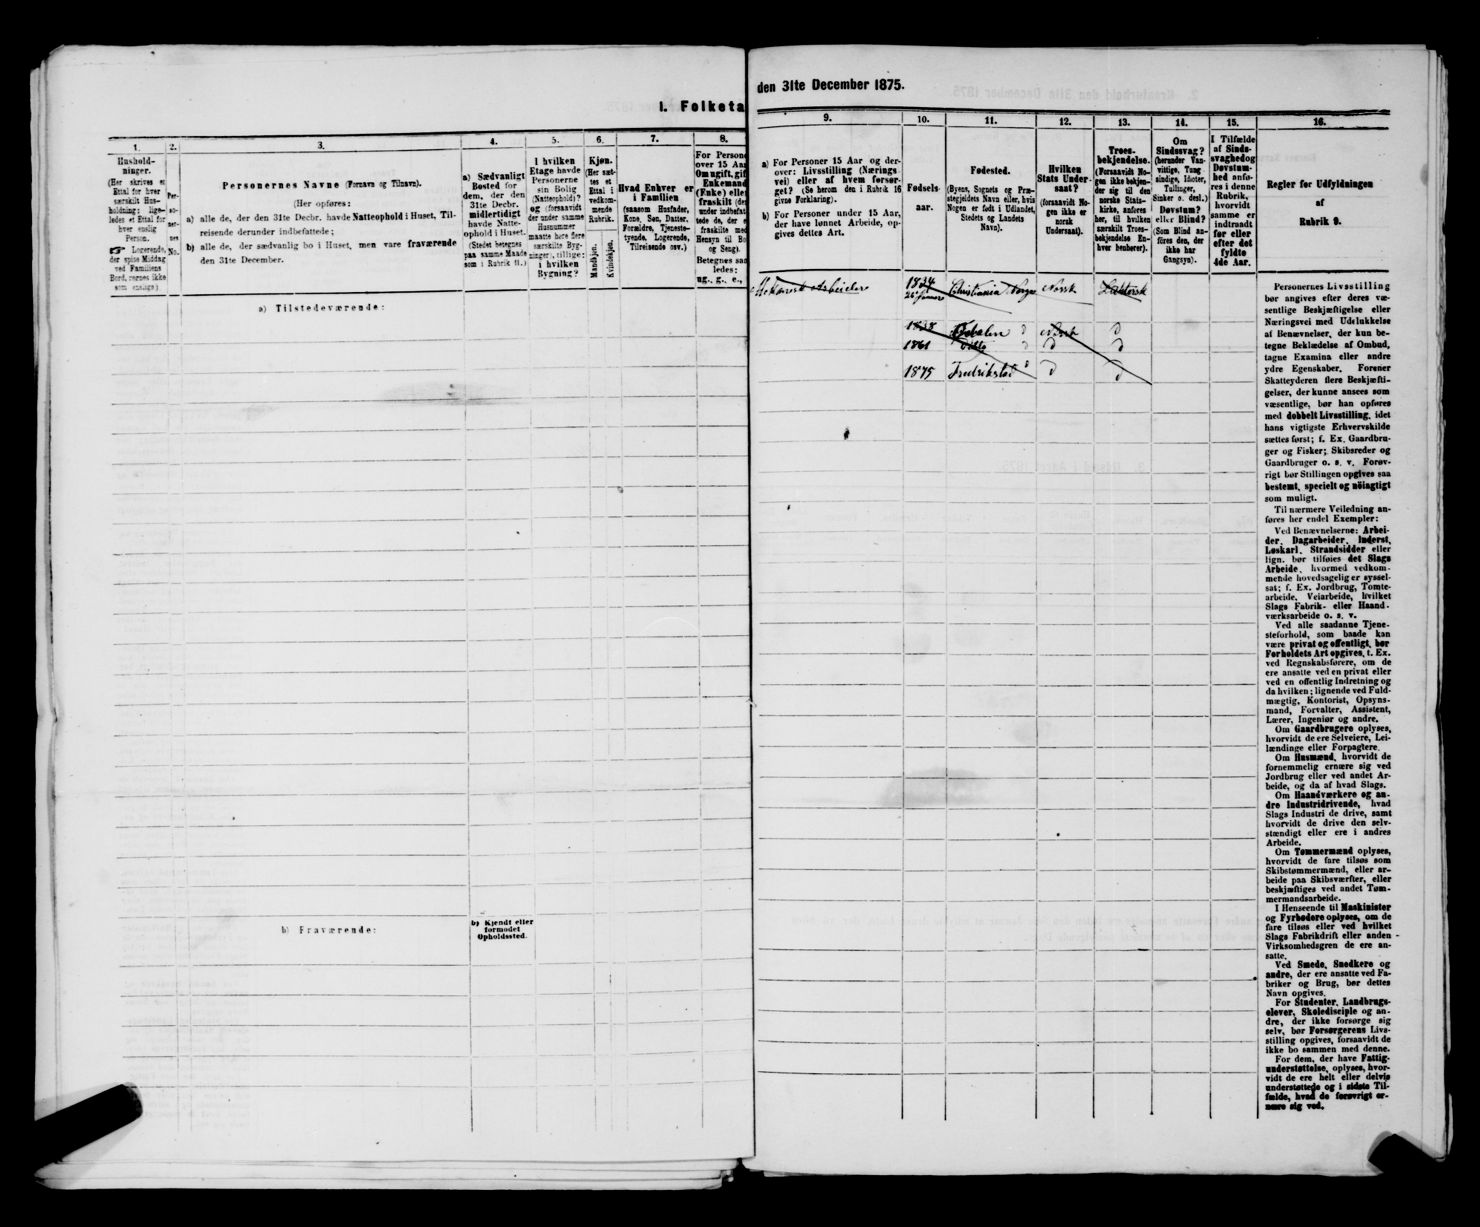 I. Folketa
den 31te December 1875.
1.
2.
3.
4.
5.
6.
7.
8.
Hushold-
ninger.
(Her skrives et
Ettal for hver
særskilt Hus-
holdning; lige-
ledes et Ettal for
hver enslig
Person.
☞ Logerende,
der spise Middag
ved Familiens
Bord, regnes ikke
som enslige).
Per-
so-
ner-
nes
No.
Personernes Navne (Fornavn og Tilnavn).
(Her opføres:
a) alle de, der den 31te Decbr. havde Natteophold i Huset, Til-
reisende derunder indbefattede;
b) alle de, der sædvanlig bo i Huset, men vare fraværende
den 31te December.
a) Sædvanligt
Bosted for
dem, der den
31te Decbr.
midlertidigt
havde Natte-
ophold i Huset.
(Stedet betegnes
paa samme Maade
som i Rubrik 11.)
I hvilken
Etage havde
Personerne
sin Bolig
(Natteophold)?
og (forsaavidt
der under samme
Husnummer
maatte høre flere
særskilte Byg-
ninger), tillige:
i hvilken
Bygning?
Kjøn.
(Her sæt-
tes et
Ettal i
vedkom-
mende
Rubrik.
Mandkjøn.
Kvindekjøn.
Hvad Enhver er
i Familien
(saasom Husfader,
Kone, Søn, Datter,
Forældre, Tjeneste-
tyende, Logerende,
Tilreisende osv.)
For Person
over 15 Aa
Om ugift, gif
Enkemand
(Enke) elle
fraskilt (de
under indbefat
tede de, der e
fraskilte med
Hensyn til Bo
og Seng).
Betegnes saa
ledes:
ug., g., e.,
a) Tilstedeværende:
b) Fraværende:
b) Kjendt eller
formodet
Opholdssted.
9.
10.
11.
12.
13.
14.
15.
16.
a) For Personer 15 Aar og der-
over: Livsstilling (Nærings-
vei) eller af hvem forsør-
get? (Se herom den i Rubrik 16
givne Forklaring).
b) For Personer under 15 Aar,
der have lønnet Arbeide, op-
gives dettes Art.
Fødsels-
aar.
Fødested.
(Byens, Sognets og Præ-
stegjeldets Navn eller, hvis
Nogen er født i Udlandet,
Stedets og Landets
Navn).
Hvilken
Stats Under-
saat?
(forsaavidt No-
gen ikke er
norsk
Undersaat).
Troes-
bekjendelse.
(Forsaavidt No-
gen ikke bekjen-
der sig til den
norske Stats-
kirke, anføres
her, til hvilken
særskilt Troes-
bekjendelse En-
hver henhører).
Om
Sindssvag?
(herunder Van-
vittige, Tung-
sindige, Idioter,
Tullinger,
Sinker o. desl.)
Døvstum?
eller Blind?
(Som Blind an-
føres den, der
ikke har
Gangsyn).
I Tilfælde
af Sinds-
svaghed og
Døvstum-
hed anfø-
res i denne
Rubrik,
hvorvidt
samme er
indtraadt
før eller
efter det
fyldte
4de Aar.
Regler for Udfyldningen
af
Rubrik 9.
Mekanisk Arbeider 1834 Christiania Norge Norsk Luthersk
1838 Norsk D
1861 Ditto D D D
1875 Fredrikstad D D D
Personernes Livsstilling
bør angives efter deres væ-
sentlige Beskjæftigelse eller
Næringsvei med Udelukkelse
af Benævnelser, der kun be-
tegne Beklædelse af Ombud,
tagne Examina eller andre
ydre Egenskaber. Forener
Skatteyderen flere Beskjæfti-
gelser, der kunne ansees som
væsentlige, bør han opføres
med dobbelt Livsstilling, idet
hans vigtigste Erhvervskilde
sættes først; f. Ex. Gaardbru-
ger og Fisker; Skibsreder og
Gaardbruger o. s. v. Forøv-
rigt bør Stillingen opgives saa
bestemt, specielt og nöiagtigt
som muligt.
Til nærmere Veiledning an-
føres her endel Exempler:
Ved Benævnelserne: Arbei-
der, Dagarbeider, Inderst,
Løskarl, Strandsidder eller
lign. bør tilføies det Slags
Arbeide, hvormed vedkom-
mende hovedsagelig er syssel-
sat; f. Ex. Jordbrug, Tomte-
arbeide, Veiarbeide, hvilket
Slags Fabrik- eller Haand-
værksarbeide o. s. v.
Ved alle saadanne Tjene-
steforhold, som baade kan
være privat og offentligt, bør
Forholdets Art opgives, f. Ex.
ved Regnskabsførere, om de
ere ansatte ved en privat eller
ved en offentlig Indretning og
da hvilken; lignende ved Fuld-
mægtig, Kontorist, Opsyns-
mand, Forvalter, Assistent,
Lærer, Ingeniør og andre.
Om Gaardbrugere oplyses,
hvorvidt de ere Selveiere, Lei-
lændinge eller Forpagtere.
Om Husmænd, hvorvidt de
fornemmelig ernære sig ved
Jordbrug eller ved andet Ar-
beide, og da af hvad Slags.
Om Haandværkere og an-
dre Industridrivende, hvad
Slags Industri de drive, samt
hvorvidt de drive den selv-
stændigt eller ere i andres
Arbeide.
Om Tømmermænd oplyses,
hvorvidt de fare tilsøs som
Skibstømmermænd, eller ar-
beide paa Skibsværfter, eller
beskjæftiges ved andet Tøm-
mermandsarbeide.
I Henseende til Maskinister
og Fyrbødere oplyses, om de
fare tilsøs eller ved hvilket
Slags Fabrikdrift eller anden
Virksomhedsgren de ere an-
satte.
Ved Smede, Snedkere og
andre, der ere ansatte ved Fa-
briker og Brug, bør dettes
Navn opgives.
For Studenter, Landbrugs-
elever, Skoledisciple og an-
dre, der ikke forsørge sig
selv, bør Forsørgerens Livs-
stilling opgives, forsaavidt de
ikke bo sammen med denne.
For dem, der have Fattig-
understøttelse, oplyses, hvor-
vidt de ere helt eller delvis
understøttede og i sidste Til-
fælde, hvad de forøvrigt er-
nære sig ved.